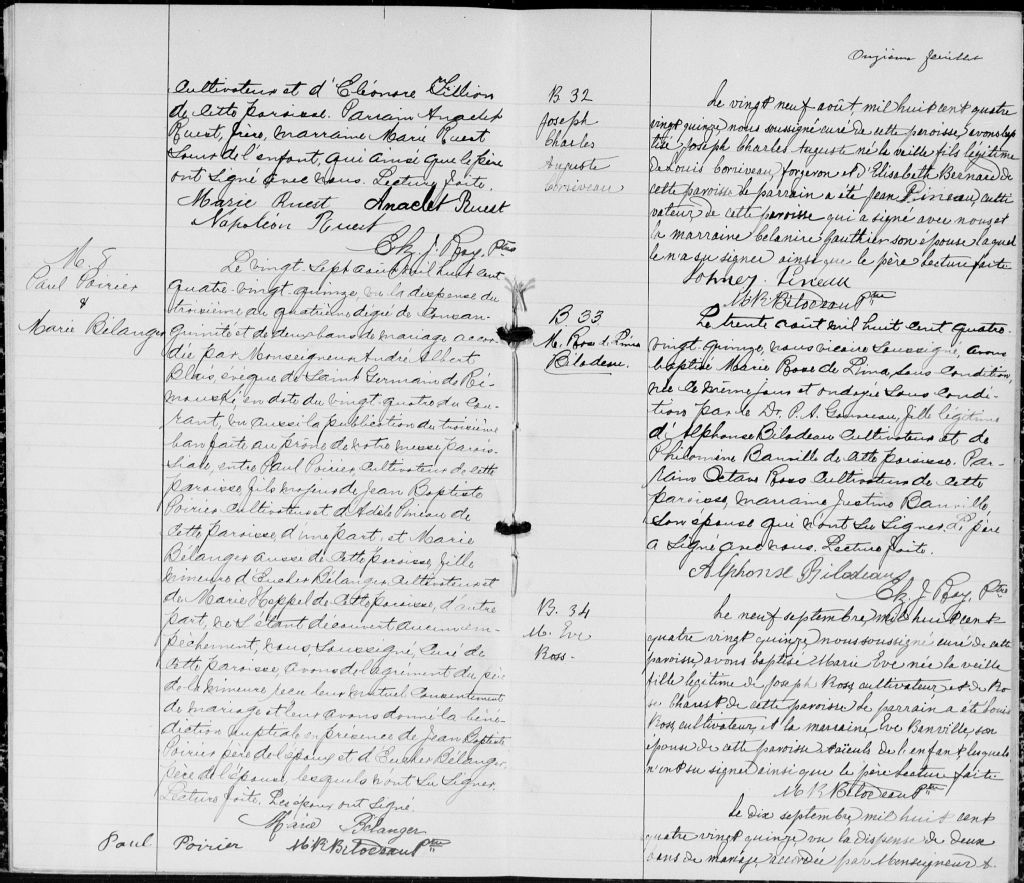 cultivateur et d'Eléonore Fillion
de cette paroisse. Parrain Anaclet
Ruest, frère, marraine Marie Ruest
soeur de l'enfant, qui ainsi que le père
ont signé avec nous. Lecture faite.
Marie Ruest Anaclet Ruest
Napoléon Ruest
J. Roy, Ptre
M. 5
Paul Poirier
&
Marie Bélanger
Le vingt-sept août mil huit cent
quatre-vingt-quinze, vu la dispense du
troisième au quatrième degré de consan-
guinité et de deux bans de mariage accor-
dée par Monseigneur André Albert
Blais évêque de Saint Germain de Ri-
mouski en date du vingt-quatre du cou-
rant, vu aussi la publication du troisième
ban faite au prône de notre messe parois-
siale, entre Paul Poirier, cultivateur de cette
paroisse, fils majeur de Jean Baptiste
Poirier cultivateur et d'Adèle Pineau de
cette paroisse, d'une part, et Marie
Bélanger aussi de cette paroisse, fille
mineure d'Eusher Bélanger cultivateur et
de Marie Keppel de cette paroisse, d'autre
part, ne s'étant découvert aucun em-
pêchement, nous, soussigné, curé de
cette paroisse, avons de l'agrément du père
de la mineure, reçu leur mutuel consentement
de mariage et leur avons donné la béné-
diction nuptiale en présence de Jean Baptiste
Poirier père de l'époux et d'Eusher Bélanger,
père de l'épouse lesquels n'ont su signer.
Lecture faite. Les époux ont signé.
Marie Bélanger
Paul Poirier M R Bilodeau Ptre
Onzième feuillet
B 32
Joseph
Charles
Auguste
Corriveau
Le vingt neuf août mil huit cent quatre
vingt quinze nous soussigné curé de cette paroisse avons bap
tisé Joseph Charles Auguste né la veille fils légitime
de Louis Corriveau, forgeron et d'Elisabeth Bernard de
cette paroisse le parrain a été Jean Pineau, culti
vateur de cette paroisse qui a signé avec nous et
la marraine Gauthier son épouse laquel
le n'a su signer ainsi que le père Lecture faite
Pineau
M R Bilodeau Ptre
B 33
M. Rose de Lima
Bilodeau.
Le trente août mil huit cent quatre-
vingt-quinze, nous vicaire soussigné, avons
baptisé Marie Rose de Lima, sous condition,
née le même jour et ondoyée sous condi-
tion par le Dr. P. A. Gauvreau, fille légitime
d'Alphonse Bilodeau cultivateur et de
Philomène Banville de cette paroisse. Par-
rain Octave Ross cultivateur de cette
paroisse, marraine Justine Banville,
son épouse qui n'ont su signer. Le père
a signé avec nous. Lecture faite.
Alphonse Bilodeau
J. Roy, Ptre
B. 34
M. Eve
Ross.
Le neuf septembre, mil huit cent
quatre vingt quinze, nous soussigné curé de cette
paroisse avons baptisé Marie Eve née la veille
fille légitime de Joseph Ross cultivateur et de Ro
se de cette paroisse le parrain a été Louis
Ross, cultivateur, et la marraine Eve Banville, son
épouse de cette paroisse aïeuls de l'enfant lesquels
n'ont su signer ainsi que le père Lecture faite
M R Bilodeau Ptre
Le dix septembre mil huit cent
quatre vingt quinze vu la dispense de deux
bans de mariage accordée par Monseigneur A.